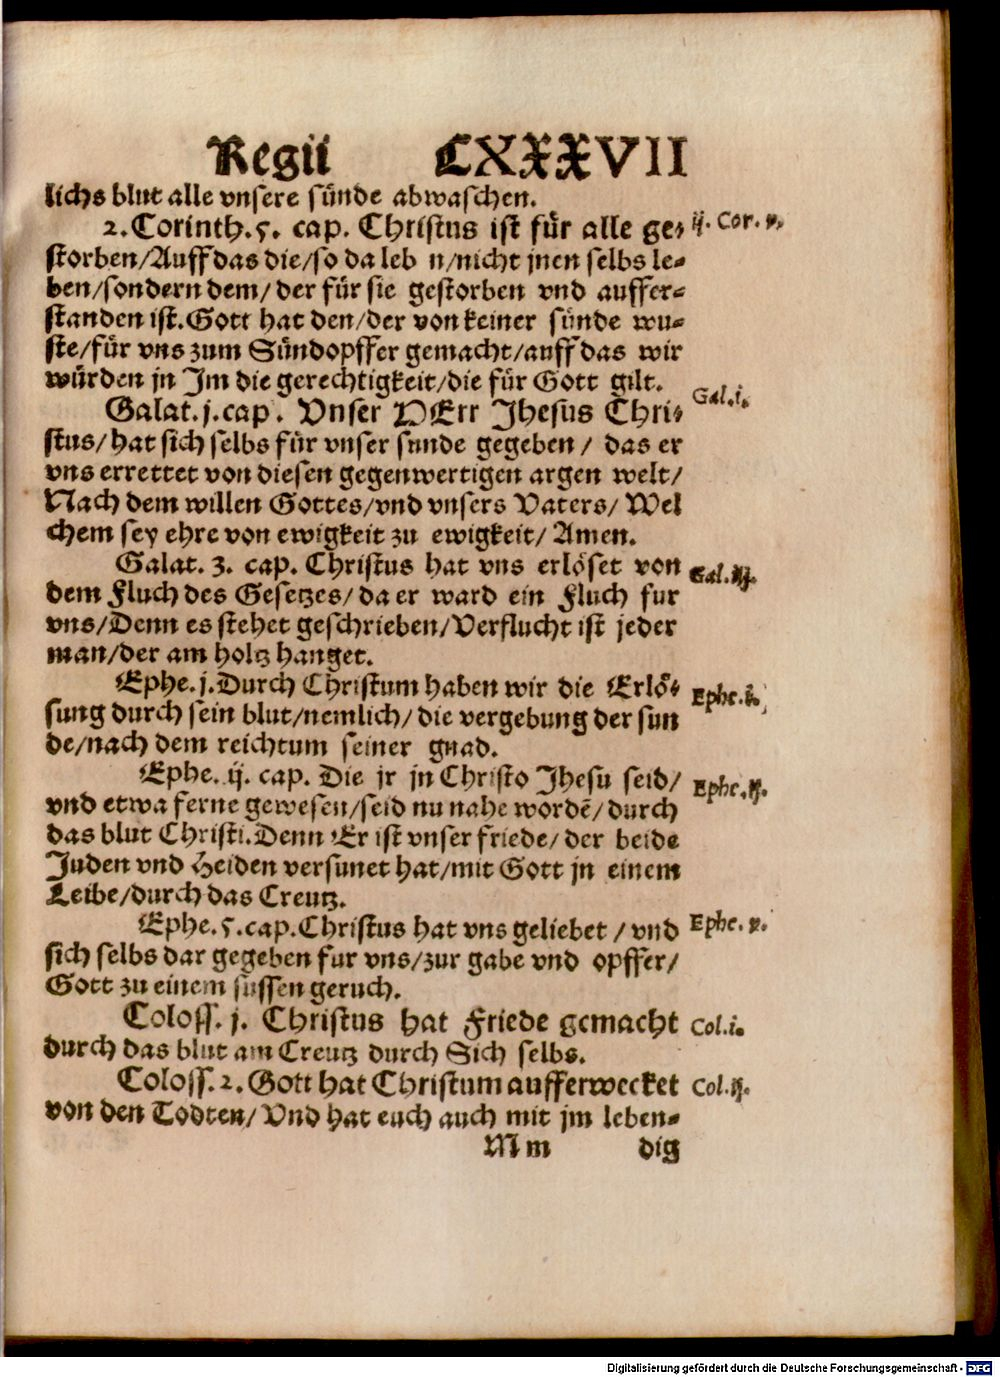 Regii CXXXVII
lichs blut alle vnsere sünde abwaschen.
2. Corinth. 5. cap. Christus ist für alle ge⸗ ij. Cor. v.
storben/Auff das die/so da leb n/nicht jnen selbs le⸗
ben/sondern dem/ der für sie gestorben vnd auffer⸗
standen ist. Gott hat den/der von keiner sünde wu⸗
ste/für vns zum Sündopffer gemacht/auff das wir
würden jn Jm die gerechtigkeit/die für Gott gilt.
Galat. j. cap. Vnser HErr Jhesus Chri⸗ Gal. i.
stus/hat sich selbs für vnser sunde gegeben/ das er
vns errettet von diesen gegenwertigen argen welt/
Nach dem willen Gottes/vnd vnsers Vaters/ Wel
chem sey ehre von ewigkeit zu ewigkeit/ Amen.
Galat. 3. cap. Christus hat vns erlöset von Gal. iij.
dem Fluch des Gesetzes/ da er ward ein Fluch fur
vns/Denn es stehet geschrieben/Verflucht ist jeder
man/der am holtz hanget.
Ephe. j. Durch Christum haben wir die Erlö⸗ Ephe. i.
sung durch sein blut/nemlich/ die vergebung der sun
de/nach dem reichtum seiner gnad.
Ephe. ij. cap. Die jr jn Christo Jhesu seid/ Ephe. ij.
vnd etwa ferne gewesen/seid nu nahe wordē/durch
das blut Christi. Denn Er ist vnser friede/ der beide
Juden vnd Heiden versunet hat/mit Gott jn einem
Leibe/durch das Creutz.
Ephe. 5. cap. Christus hat vns geliebet / vnd Ephe. v.
sich selbs dar gegeben fur vns/zur gabe vnd opffer/
Gott zu einem sussen geruch.
Coloss. j. Christus hat Friede gemacht Col. i.
durch das blut am Creutz durch Sich selbs.
Coloss. 2. Gott hat Christum aufferwecket Col. ij.
von den Todten/ Vnd hat euch auch mit jm leben⸗
M m dig
Digitalisierung gefördert durch die Deutsche Forschungsgemeinschaft - DFG